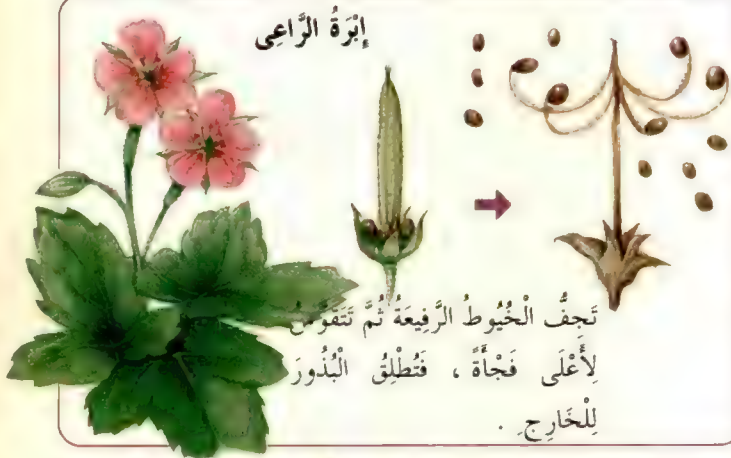 إِبْرَةُ الرَّاعِى
تَجِفُّ الْخُيُوطُ الرَّفِيعَةُ ثُمَّ تَتَقَوَّسُ
لِأَعْلَى فَجْأَةً ، فَتُطْلِقُ الْبُذُورَ
لِلْخَارِجِ .